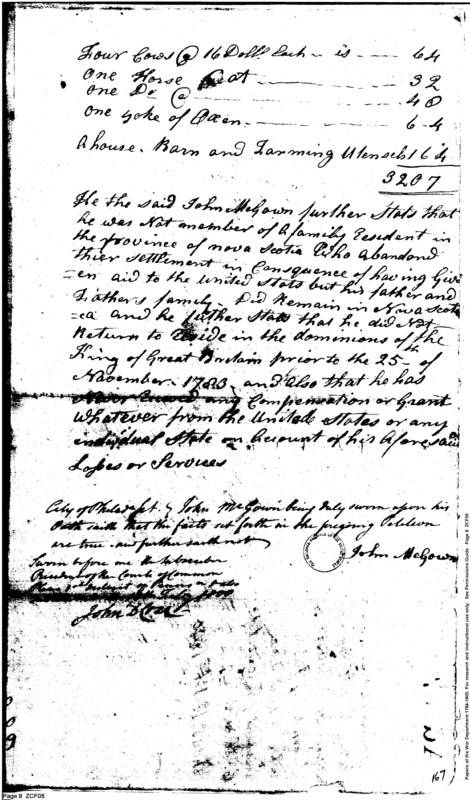 Four Cows @ 16 Doll.s Each - is - 64
One Horse at - 32
one Do @ - 48
one yoke of Oxen - 64
A house. Barn and Farming Utensels 164
3207
He the said John McGown further Stats that
he was Not member of a family Resident in
the province of nova Scotia Who abandond
thier settlement in Consquence of having Giv
=en aid to the united stats but his father and
Fathers family. Did Remain in Nova Scoti
=ca and he futher Stats that he did Not
Return to Reside in the dominions of the
King of Great Britain prior to the 25th of
November. 1783. and also that he has
Never any Compensation or Grant
Whatever from the United States or any
individual State on Account of his Afore said
Loses or Services
City of Philad. John McGown being duly sworn upon his
Oath saith that the facts set forth in the Petition
are true and further saith not
John McGown
Sworn before me the Subscriber
President of the Courts of Common
Pleas
July 1800
John D Coxe
167
Page 8 ZCF05
Papers of the War Department 1784-1800. For research and instructional use only. See Permissions Guide. Page 8 ZCF05